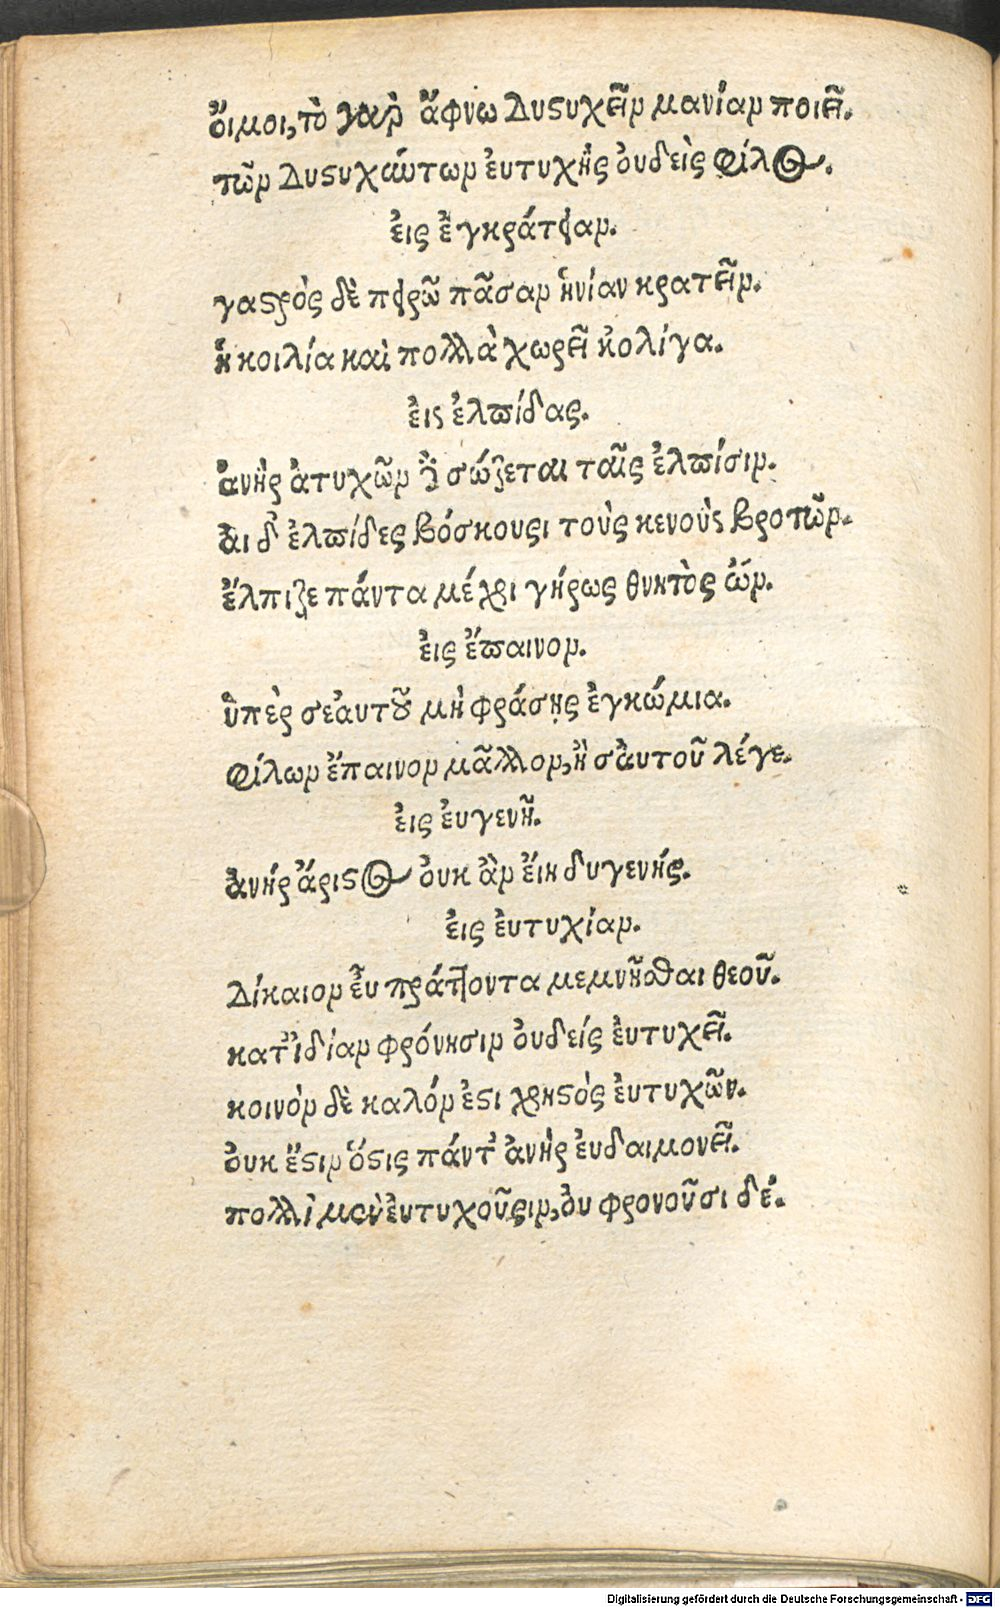 ὄιμοι, τὸ γαρ̀ ἄφνω Δυστυχεῖν μανίαν ποιεῖ.
τῶν Δυστυχώντων ἐυτυχὴς ὀυδεὶς φίλος.
ἐις ἐγκράτειαν.
γαστρὸς δὲ πειρῶ πᾶσαν ἡνίαν κρατεῖν.
ἡ κοιλία καὶ πολλὰ χωρεῖ κὀλίγα.
ἐις ἐλπίδας.
ἀνὴρ ἀτυχῶν δὲ σώζεται ταῖς ἐλπίσιν.
ἁι δ' ἐλπίδες βόσκουσι τοὺς κενοὺς βροτῶν.
ἔλπιζε πάντα μέχρι γήρως θνητὸς ὤν.
ἐις ἔπαινον.
ὑπὲρ σεἀυτοῦ μὴ φράσῃς ἐγκώμια.
φίλων ἔπαινον μᾶλλον, ἢ σἀυτοῦ λέγε.
ἐις ἐυγενῆ.
ἀνήρ ἄριστος ὀυκ ἂν ἔιη δυγενής.
ἐις ἐυτυχίαν.
Δίκαιον ἐυ πράττοντα μεμνῆσθαι θεοῦ.
κατ' ἰδίαν φρόνησιν ὀυδείς ἐυτυχεῖ.
κοινὸν δὲ καλόν ἐστι χρηστὸς ἐυτυχῶν.
ὀυκ ἔστιν ὅστις πάντ' ἀνὴρ ἐυδαιμονεῖ.
πολλὶ μὲν ἐυτυχοῦσιν, ὀυ φρονοῦσι δέ.
Digitalisierung gefördert durch die Deutsche Forschungsgemeinschaft - DFG